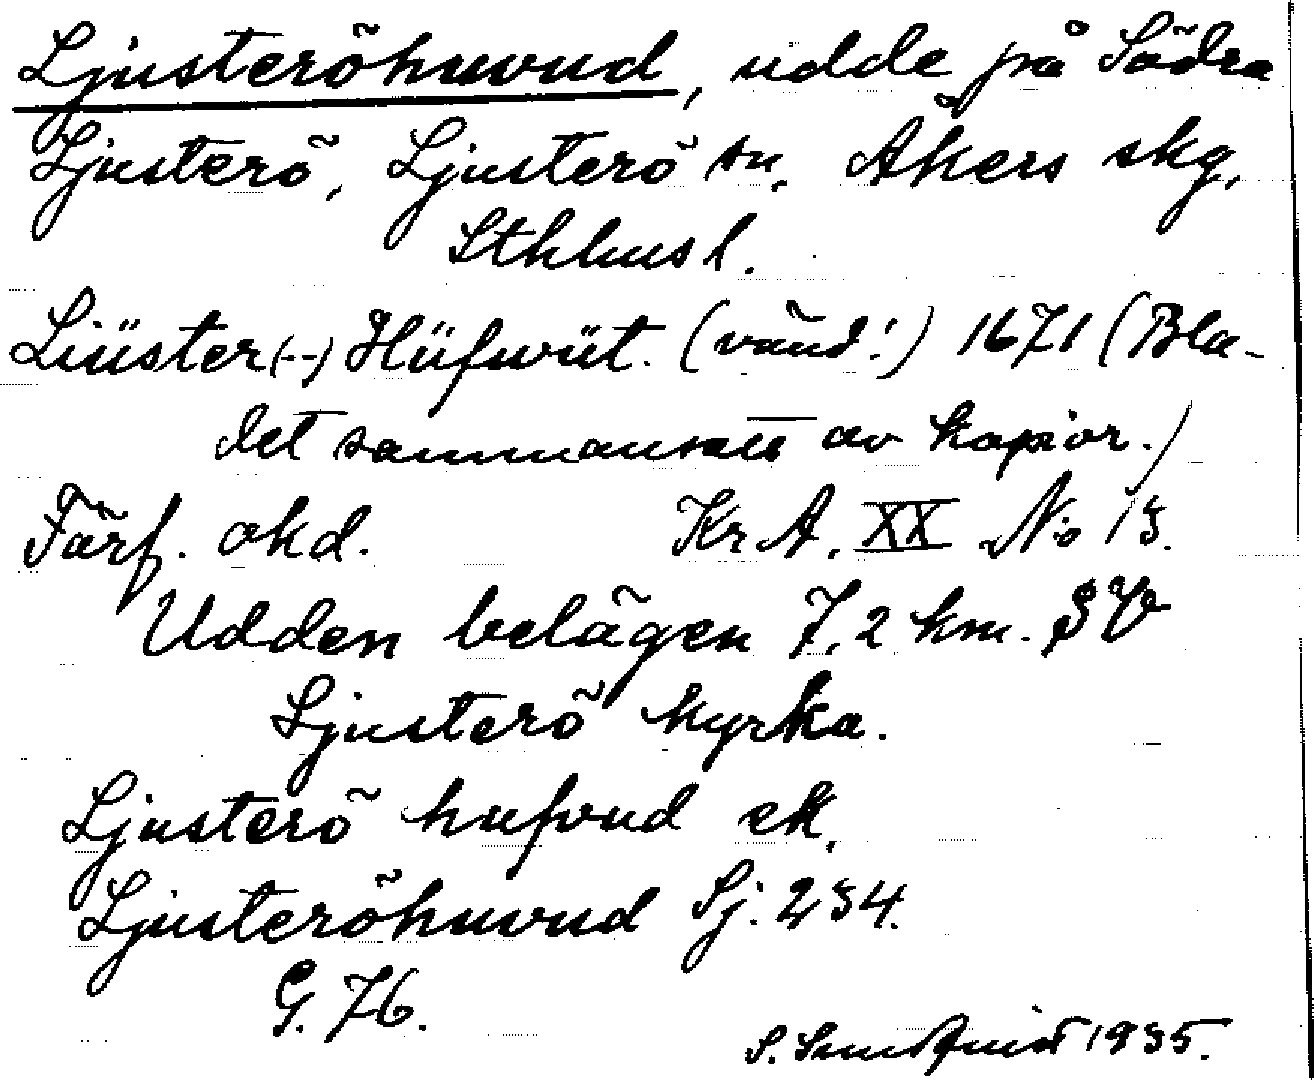 Ljusteröhuvud, udde på Södra
Ljusterö, Ljusterö sn. Åkers skg,
Sthlms l.
Liüster(--) Hüfwüt. (vänd!) 1671 (Bla-
det sammansatt av kopior.)
Förf. okd. Kr A. XX No 13.
Udden belägen 7,2 km. SV
Ljusterö kyrka.
Ljusterö hufvud ek.
Ljusteröhuvud Sj. 234.
G. 76.
S. Sundquist 1935.